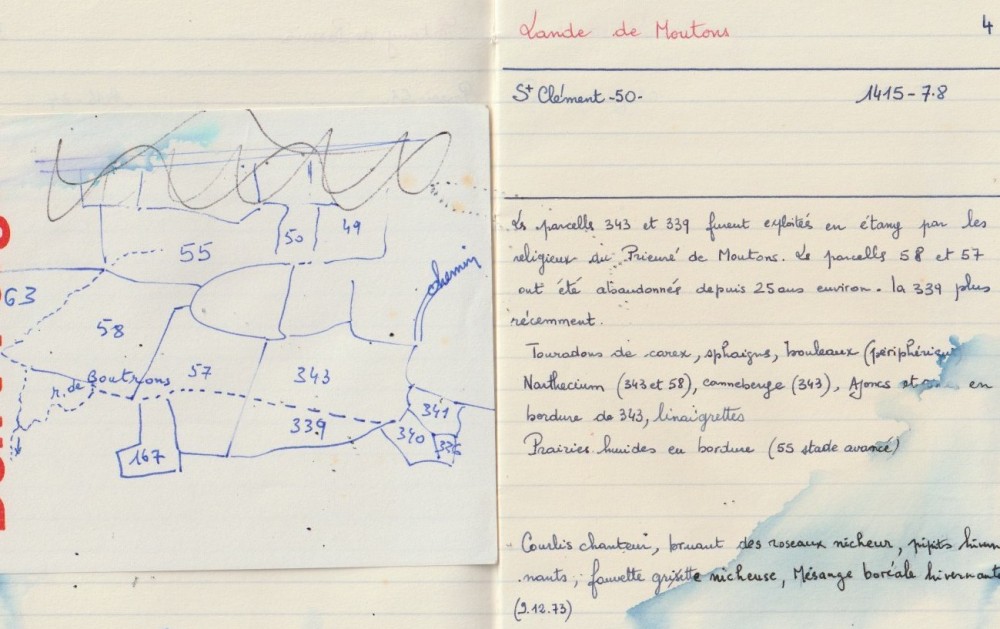 55
50
49
chemin
63
58
57
343
r. de Boutrons
339
341
340
167
Lande de Moutons
4
St Clément -50-
1415 - 7.8
Ls parcells 343 et 339 furent exploités en étang par les
religieux du Prieuré de Moutons. Ls parcells 58 et 57
ont été abandonnés depuis 25 ans environ. la 339 plus
récemment.
Touradons de carex, sphaigns, bouleaux (périphérique
Narthecium (343 et 58), canneberge (343), Ajoncs et en
bordure de 343, linaigrettes
Prairies humides en bordure (55 stade avancé)
Courlis chanteur, bruant des roseaux nicheur, pipits hiver
nants, fauvette grisette nicheuse, Mésange boréale hivernante
(2.12.73)